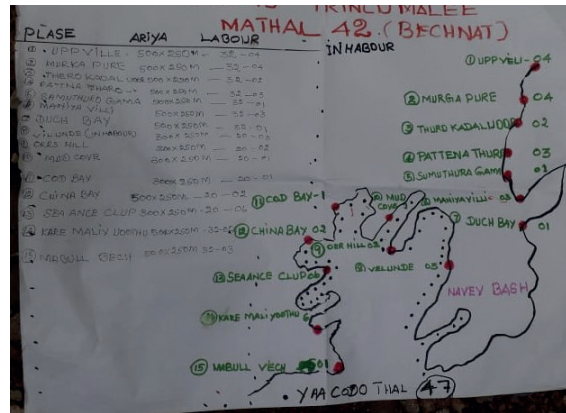 TRINCUMALEE
MATHAL 42. (BECHNAT)
PLASE ARIYA LABOUR
INHABOUR
UPPVILLE 500x250M — 32-04
MURKA PURE 500x250M — 32-04
THERO KADAL
PATTENA THARO
SAMUTHURO GAMA 500x250M — 32-01
MANIYA VILLI 500x250M — 32-03
DUCH BAY 500x250M — 32-01
VELUNDE (INHABOUR)
OARS HILL 20-02
MUD COVR
COD BAY 300x250M — 20-01
CHINA BAY 500x250M — 20-02
SEA ANCE CLUP 300x250M - 20-06
KARE MALIV UOOTHU 500x250M - 32-06
MABULL BECH 500x250M - 32-03
① UPPVELI - 04
② MURGIA PURE 04
③ THURO KADALUDOR 02
④ PATTENA THURE 03
⑤ SUMUTHURA GAMM 01
⑥ MANIYAVILLI 03
⑦ DUCH BAY 01
⑧ VELUNDE 03
⑨ OBR HILL 02
⑩ MUD COVE
⑪ COD BAY-1
⑫ CHINA BAY 02
⑬ SEA ANCE CLUP 06
⑭ KARE MALI YOOTHU 6
⑮ MABULL VECH 01
NAVEY BASH
• YAA CODO THAL 47